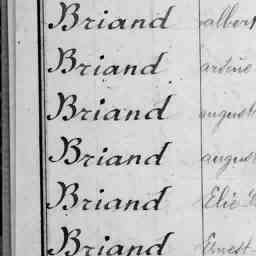 Briand albert
Briand arsène
Briand august
Briand august
Briand Elie
Briand Ernest